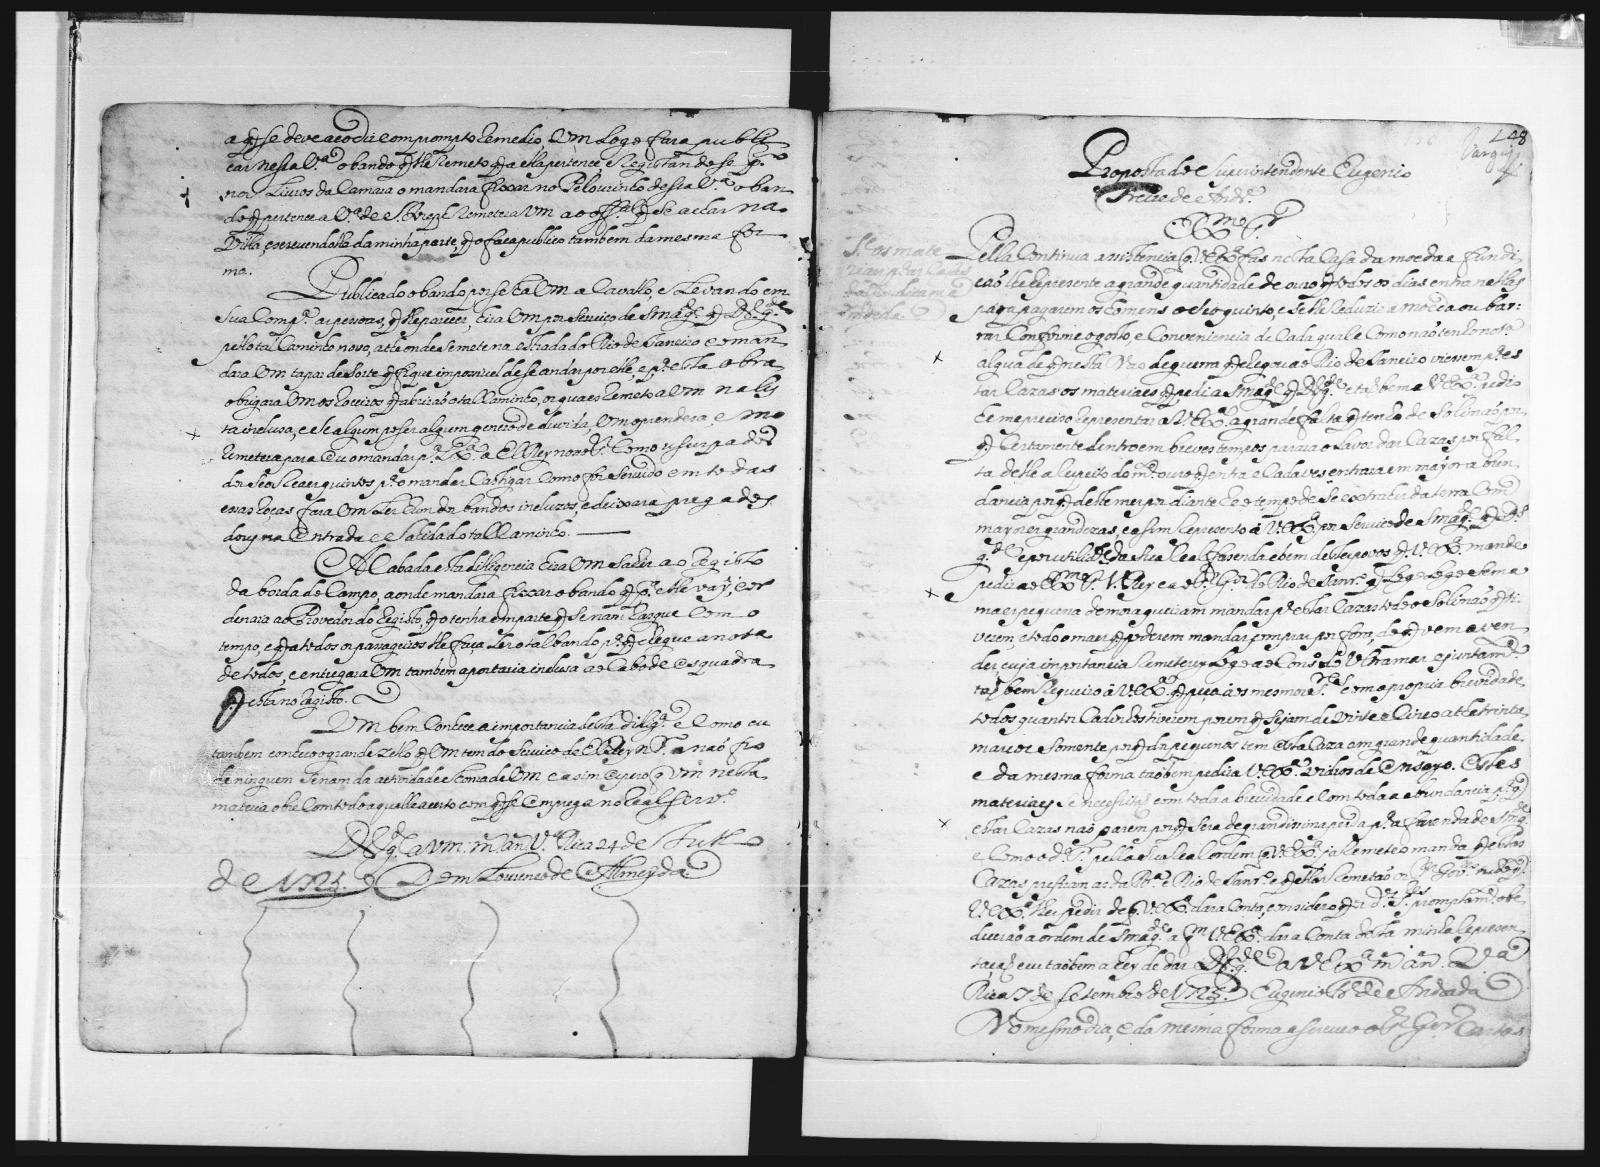 a q̃ se deve acodir com prompto remedio, Vm logo fara publi
car nessa V.ª o bando q̃ lhe remeto q̃ a ella pertence e Registandose
nos Livros da Camara o mandara fixar no Pelourinho dessa V.ª o ban
do q̃ pertence a V.ª de S. Joze remetera Vm ao off.al q̃ se achar na
Villa, escrevendolhe da minha parte, q̃ o faça publico tambem da mesma for
ma.
Publicado o bando por se ca Vm a Cavallo, e levando em
sua Comp.ª as pessoas, q̃ lhe parecer, ira Vm por serviço de S Mag.e q̃ D.s g.e
pello tal Caminho novo, athe onde se mete na estrada do Rio de Janeiro e o man
dara Vm tapar de sorte q̃ fique impossivel de se andar por elle, e p.ª esta obra
obrigara Vm os roceiros q̃ abrirão o tal Caminho, os quaes remeto a Vm na lis
ta inclusa, e se algum poser algum genero de duvida, Vm o prendera, e mo
remetera para eu o mandar p.ª Lx.ª a ElRey nosso S.r como usurpador
dos seos Reaes quintos p.ª o mandar Castigar como for servido e em todas
essas roças fara Vm Ler hum dos bandos inclusos, e deixara pregados
dous na entrada e Sahida do tal Caminho.
Acabada esta diligencia ira Vm sahir ao registo
da borda do Campo, aonde mandara fixar o bando q̃ p.ª elle vay, e or
denara ao Provedor do Registo, q̃ o tenha em parte q̃ se nam rasgue com o
tempo, e q̃ a todos os passageiros lhe faça Ler o tal bando p.ª q̃ chegue a nota
de todos, e entregara Vm tambem a portaria inclusa ao Cabo de esquadra
q̃ esta no registo.
Vm bem Conhece a importancia desta dilig.ª e como eu
tambem conheço o grande zello q̃ Vm tem do Serviço de ElRey N. S.r a não fio
de ninguem senam da actividade e honra de Vm e assim espero q̃ Vm nesta
materia obre Com todo aquelle acerto com q̃ se emprega no Real serv.º
D.s g.e a Vm. m. an. V.ª Rica 24 de Julho
de 1725. Dom Lourenço de Almeyda

148
Proposta do Superintendente Eugenio
Freire de Andr.e
Ex.mo S.r
S.e os mate
riaes p.ª as Casas
da fundição e
moeda
Pella Continua assistencia q̃ V. Ex.ª fas nesta Casa da moeda e fundi
ção lhe he prezente a grande quantidade de ouro q̃ todos os dias entra nellas
para pagarem os homens o seo quinto, e se lhe reduzir a moeda ou bar:
ras Conforme o gosto, e Conveniencia de Cada qual e Como não tenho nota
algua de q̃ nesta Nao de guerra q̃ chegou ao Rio de Janeiro viessem p.ª es
tas Cazas os materiaes q̃ pedi a S Mag.e q̃ D.s g.e e tambem a V. Ex.ª pedio
he me preciso representar a V. Ex.ª a grande falta q̃ tenho de Solimão por
q̃ Certamente dentro em breves tempos parara o Lavor das Cazas por fal
ta delle a respeito do m.to ouro q̃ entra e Cada ves entrara em mayor abun
dancia por q̃ deste mes por diante he o tempo de se extrahir da terra Com
mayor grandeza, e assim represento a V. Ex.ª por Serviço de S Mag.e q̃ D.s
g.e e por utilid.e da sua Real fazenda e bem destes povos q̃ V. Ex.ª mande
pedir ao Ex.mo S.r V. Rey e ao S.r G.or do Rio de Janr.º q̃ Logo Logo sem a
mais pequena demora queiram mandar p.ª estas Cazas todo o Solimão q̃ ti
verem, e todo o mais q̃ poderem mandar comprar por fora, do q̃ vem a ven
der cuja importancia remetere Logo ao Cons.º Ultramar. e juntam.e
tãobem requeiro a V. Ex.ª q̃ peça aos mesmos S.res com a propria brevidade
todos quantos Cadinhos tiverem porem q̃ sejam de vinte e Cinco athe trinta
marcos somente por q̃ dos pequenos tem esta Caza em grande quantidade
e da mesma forma tãobem pedira V. Ex.ª vidros de ensayo. Estes
materiaes se necessitão com toda a brevidade e Com toda a abundancia p.ª q̃
estas Cazas não parem por q̃ sera de grandissima perda p.ª a fazenda de S Mg.e
e Como o d.º S.r pella sua Real ordem q̃ V. Ex.ª ja remeteo manda q̃ estas
Cazas precisem as da B.ª e Rio de Janr.º e q̃ lhes remetão os S.res Gov.res tudo o q̃
V. Ex.ª lhes pedir de q̃ V. Ex.ª dara Conta, considero q̃ os d.os S.res promptam.e obe
decerão a ordem de S Mag.e a q.m V. Ex.ª dara Conta desta minha represen
tação e eu tãobem a hey de dar D.s g.e a V. Ex.ª m. an. V.ª
Rica 7 de Setembro de 1725. Eugenio Fr.e de Andrada
No mesmo dia, e da mesma forma escreveo o S.r G.or Cartas